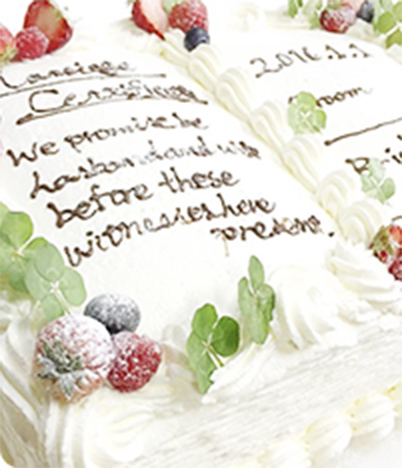 Certificate
We promise be
husband and wife
before these
witnesses here
present.
2016.1.1
Groom